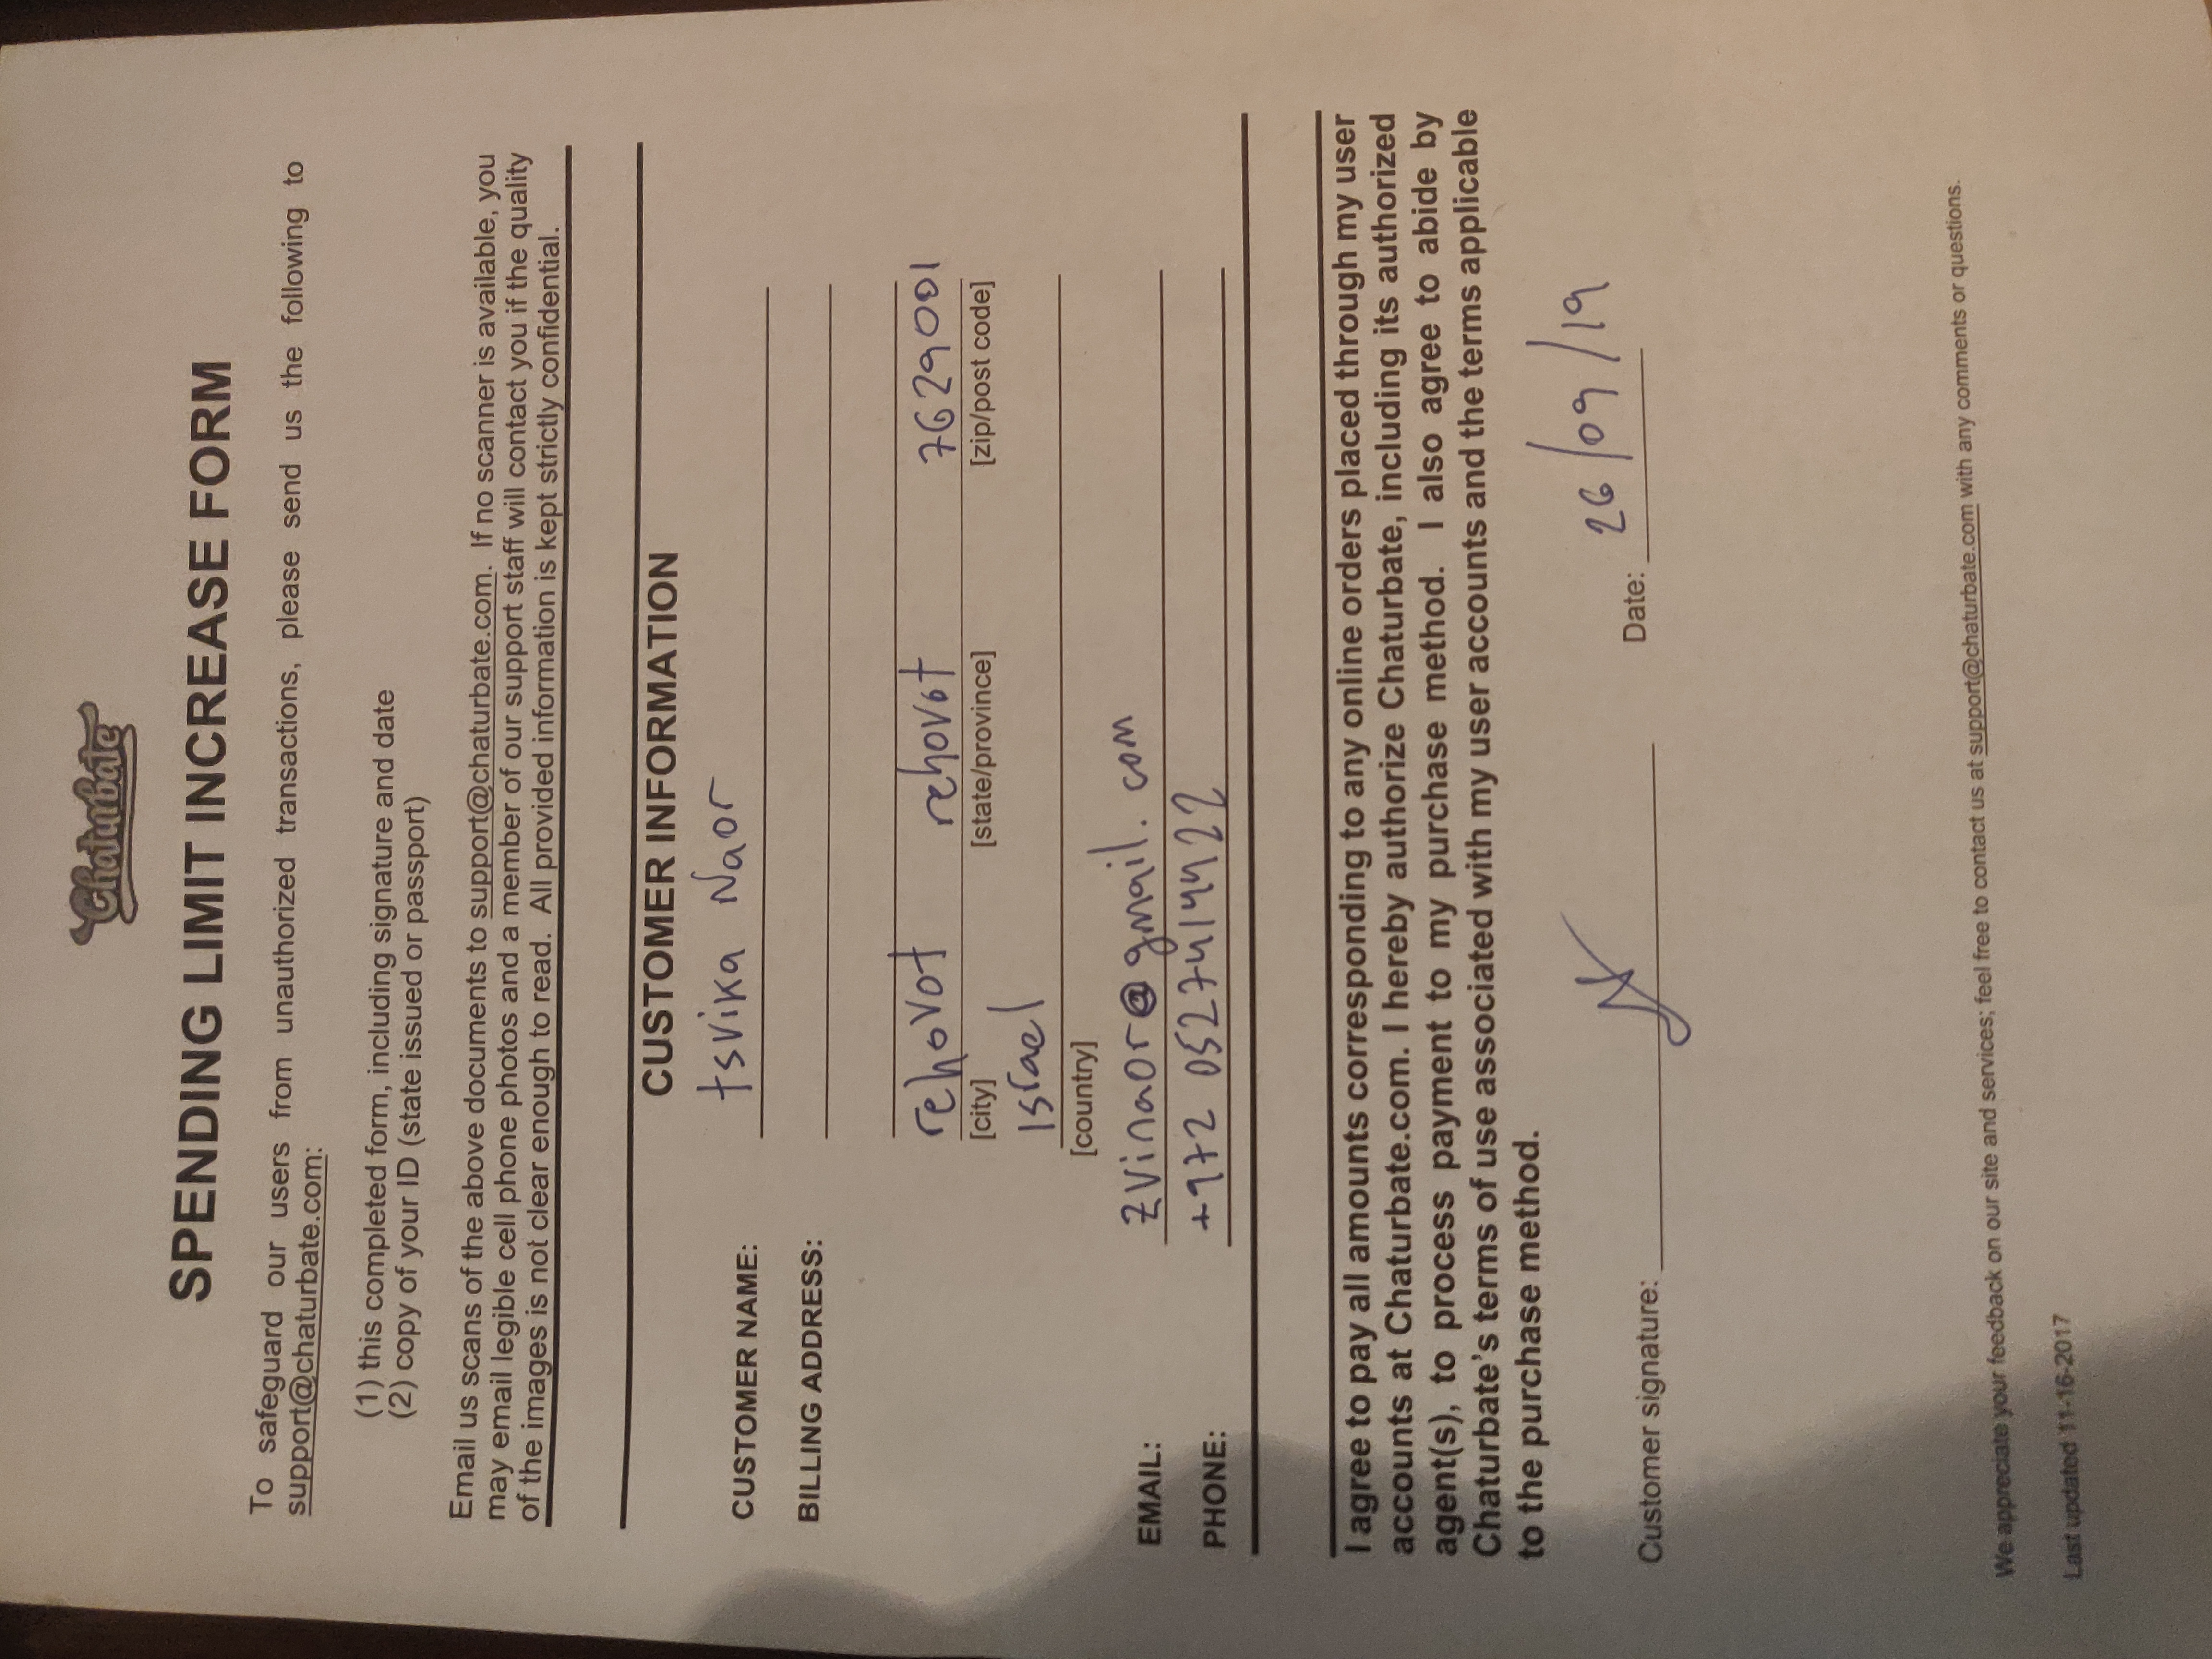 Chaturbate
SPENDING LIMIT INCREASE FORM
To safeguard our users from unauthorized transactions, please send us the following to
support@chaturbate.com:
(1) this completed form, including signature and date
(2) copy of your ID (state issued or passport)
Email us scans of the above documents to support@chaturbate.com. If no scanner is available, you
may email legible cell phone photos and a member of our support staff will contact you if the quality
of the images is not clear enough to read. All provided information is kept strictly confidential.
CUSTOMER INFORMATION
CUSTOMER NAME: tsvika Naor
BILLING ADDRESS:
rehovot rehovot 7629001
[city] [state/province] [zip/post code]
Israel
[country]
EMAIL: zvinaor@gmail.com
PHONE: +972 0527414422
I agree to pay all amounts corresponding to any online orders placed through my user
accounts at Chaturbate.com. I hereby authorize Chaturbate, including its authorized
agent(s), to process payment to my purchase method. I also agree to abide by
Chaturbate's terms of use associated with my user accounts and the terms applicable
to the purchase method.
Customer signature: Date: 26/09/19
We appreciate your feedback on our site and services; feel free to contact us at support@chaturbate.com with any comments or questions.
Last updated 11-16-2017